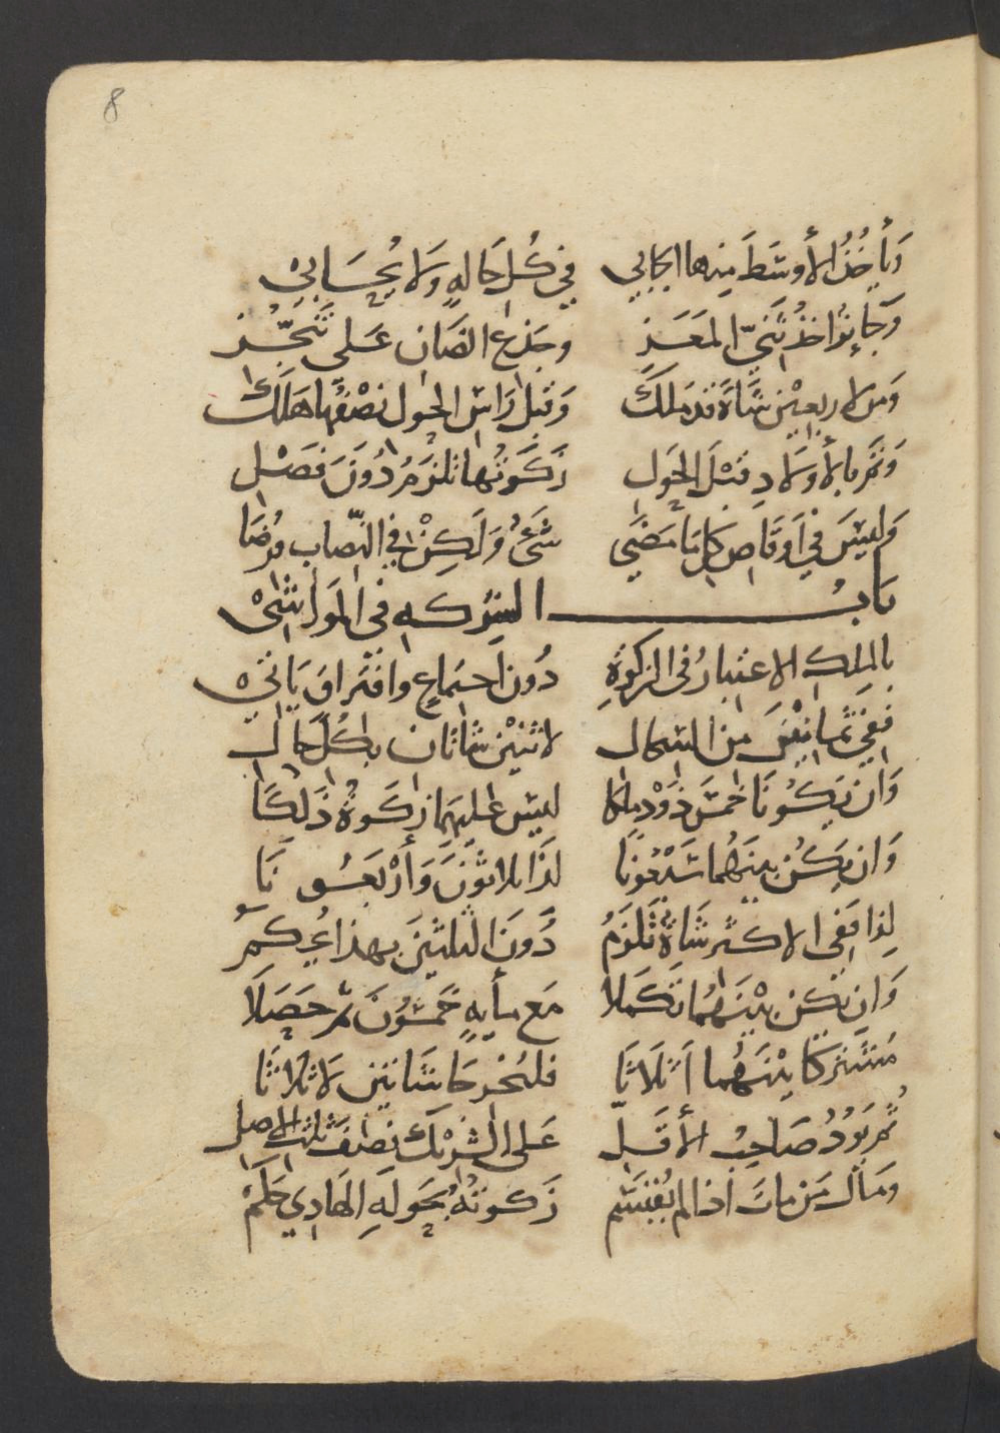 8
وَيَأخُذُ الأوسَطَ مِنها الجابي في كُلِ حَالهٍ وَلَا يُحَابيْ
وَجَائِز اخذُ ثَنيِّ المَعَزِ وجذع الضَان عَلى تنَجّز
وَمن لاربعِيْن شَاةً قد مَلَكَ وَقبل رَاس الحَول نصْفُها هَلَكْ
وَتمّ بالأوَلاد قبْلَ الحَول زكَوتُها تلزَم دُونَ فَصْل
وَليسَ في اَوقَاص كل مَا مَضَى شَئُ وَلَكِنْ في النِصاب فُرضَا
بَابُ الشركهِ في المَواشيْ
بالمِلكِ الاعتبارُ في الزكوةِ دُون اَجتماعٍ وافتراقٍ يَاتيْ
ففِي ثمَانيْنَ من الشكال لاثنَيْن شَاتَان بكُل حَال
وَان يَكُونَا خمسَ ذَوْدٍ ملكا ليسَ عليهما زكَوةُ ذَلِكَا
وَان يَكُن بينَهُما سَبْعُونَا لذَا ثلاثونَ وَأرْبَعونَا
لِذا فَفي الاكثر شَاةٌ تَلزَمُ دُونَ الثلثينَ بهذا يُحكمُ
وَان تكن بيْنَهُما تكَملَا مَع مأيهٍ خَمسُونَ ثم حَصَلَا
مُشتَركَا بيْنَهُما اَثلَاثَا فليُخرجَا شَاتَين لَا ثلَاثَا
ثُم يَرُدُ صَاحِبُ الأقَلّ عَلى الشريْك نصْفَ ثلث الاصل
وَمَال مَن مات اذا لم يُقْتسَم زكوتهُ بحَولَهِ الهَادِي حَكَمْ